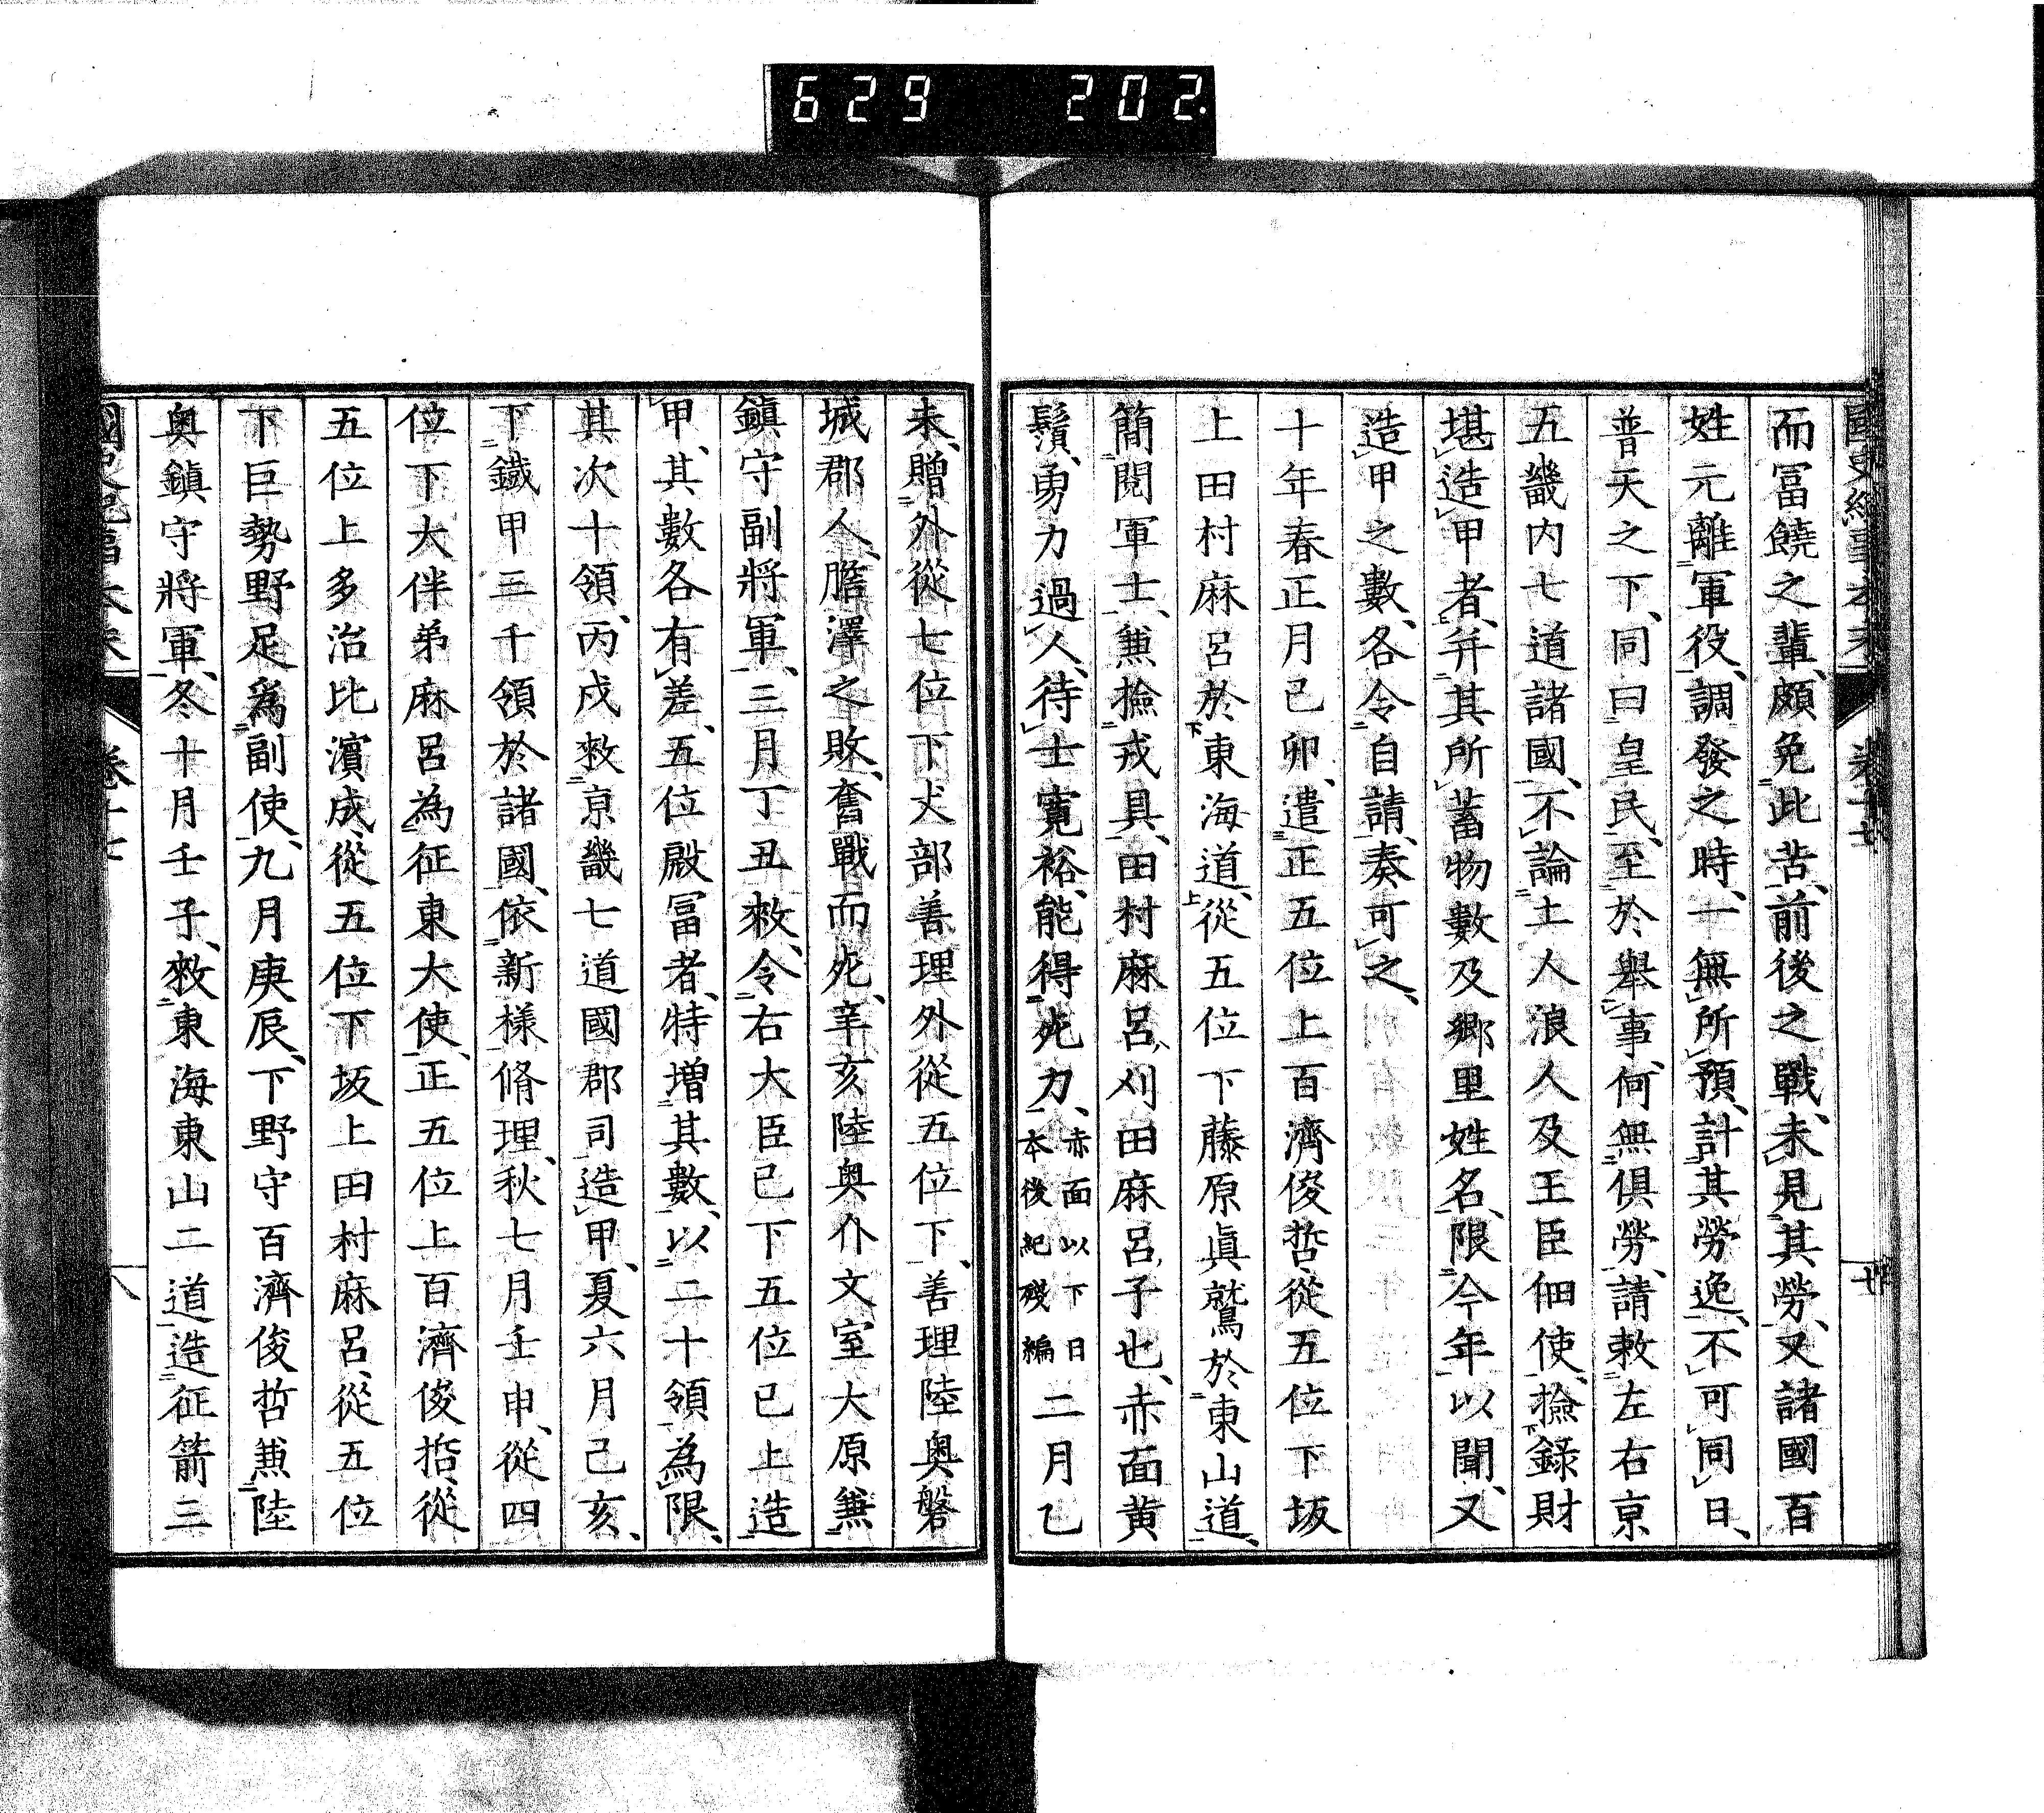 629 202
而冨饒之輩、頗免此苦、前後之戰、未見其勞、又諸國百
姓元離軍役、調發之時、一無所預、計其勞逸、不可同日、
普天之下、同曰皇民、至於舉事、何無俱勞、請敕左右京
五畿内七道諸國、不論土人浪人及王臣佃使、撿錄財
堪造甲者、并其所蓄物數及鄉里姓名、限今年以聞、又
造甲之數、各令自請、奏可之、
十年春正月己卯、遣正五位上百濟俊哲、從五位下坂
上田村麻呂於東海道、從五位下藤原眞鷲於東山道、
簡閱軍士、兼撿戎具、田村麻呂、刈田麻呂子也、赤面黃
鬚、勇力過人、待士寬裕、能得死力、赤面以下日本後紀殘編二月乙
未、贈外從七位下丈部善理外從五位下、善理陸奧磐
城郡人、膽澤之敗、奮戰而死、辛亥陸奧介文室大原兼
鎮守副將軍、三月丁丑敕、令右大臣已下五位已上造
甲、其數各有差、五位殷冨者、特增其數、以二十領為限、
其次十領、丙戌敕京畿七道國郡司造甲、夏六月己亥、
下鐵甲三千領於諸國、依新樣脩理、秋七月壬申、從四
位下大伴弟麻呂為征東大使、正五位上百濟俊哲、從
五位上多治比濱成、從五位下坂上田村麻呂、從五位
下巨勢野足爲副使、九月庚辰、下野守百濟俊哲兼陸
奧鎮守將軍、冬十月壬子、敕東海東山二道造征箭三